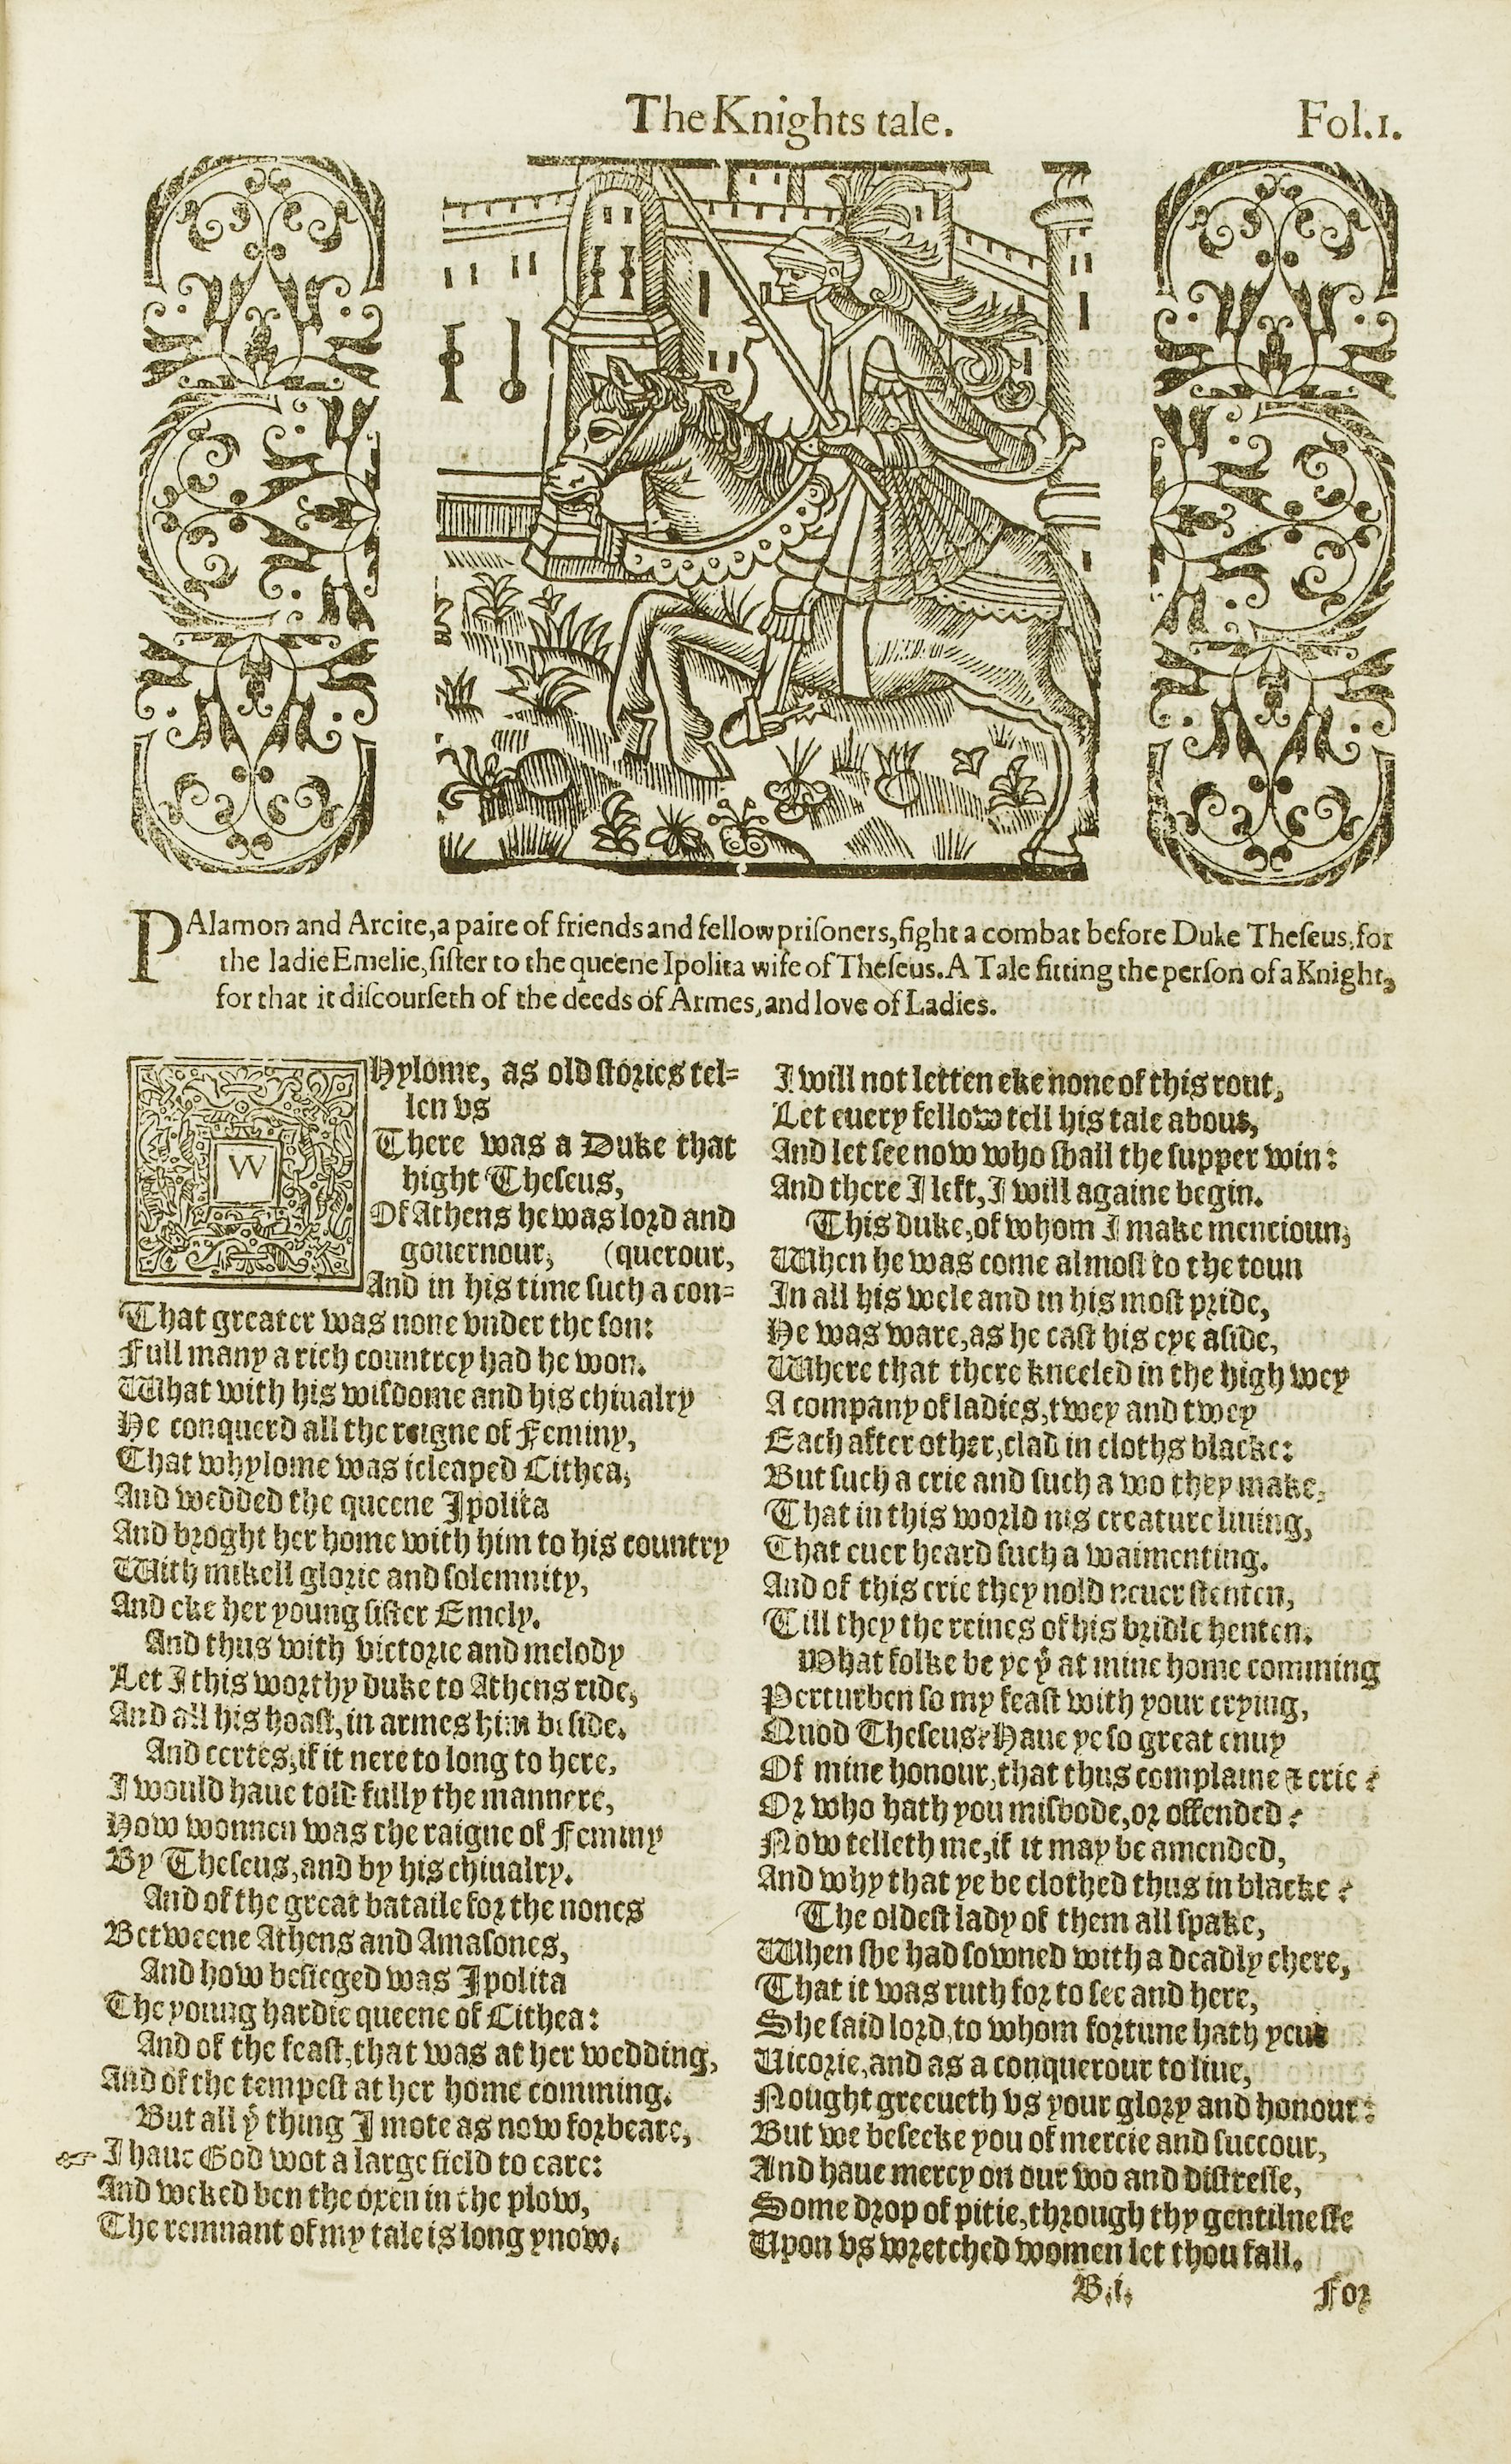 The Knights tale.
Fol.1.
PAlamon and Arcite, a paire of friends and fellow prisoners, fight a combat before Duke Theseus, for
the ladie Emelie, sister to the queene Ipolita wife of Theseus. A Tale fitting the person of a Knight,
for that it discourseth of the deeds of Armes, and love of Ladies.
WHylome, as old stories tel=
len vs
There was a Duke that
hight Theseus,
Of Athens he was lord and
gouernour, (querour,
And in his time such a con=
That greater was none vnder the son:
Full many a rich countrey had he won.
What with his wisdome and his chiualry
He conquerd all the reigne of Feminy,
That whylome was icleaped Cithea,
And wedded the queene Ipolita
And broght her home with him to his country
With mikell glorie and solemnity,
And eke her young sister Emely.
And thus with victorie and melody
Let I this worthy duke to Athens ride,
And all his hoast, in armes him beside.
And certes, if it nere to long to here,
I would haue told fully the mannere,
How wonnen was the raigne of Feminy
By Theseus, and by his chiualry.
And of the great bataile for the nones
Betweene Athens and Amasones,
And how besieged was Ipolita
The young hardie queene of Cithea:
And of the feast, that was at her wedding,
And of the tempest at her home comming.
But all yͭ thing I mote as now forbeare,
☞ I haue God wot a large field to eare:
And weked ben the oxen in the plow,
The remnant of my tale is long ynow.
I will not letten eke none of this rout,
Let euery fellow tell his tale about,
And let see now who shall the supper win:
And there I left, I will againe begin.
This duke, of whom I make mencioun,
When he was come almost to the toun
In all his wele and in his most pride,
He was ware, as he cast his eye aside,
Where that there kneeled in the high wey
A company of ladies, twey and twey
Each after other, clad in cloths blacke:
But such a crie and such a wo they make,
That in this world nis creature liuing,
That euer heard such a waimenting.
And of this crie they nold neuer stenten,
Till they the reines of his bridle henten.
What folke be ye yͭ at mine home comming
Perturben so my feast with your crying,
Quod Theseus? Haue ye so great enuy
Of mine honour, that thus complaine & crie?
Or who hath you misbode, or offended?
Now telleth me, if it may be amended,
And why that ye be clothed thus in blacke?
The oldest lady of them all spake,
When she had sowned with a deadly chere,
That it was ruth for to see and here,
She said lord, to whom fortune hath yeue
Uicorie, and as a conquerour to liue,
Nought greeueth vs your glory and honour:
But we beseeke you of mercie and succour,
And haue mercy on our wo and distresse,
Some drop of pitie, through thy gentilnesse
Upon vs wretched women let thou fall.
B.i.
For